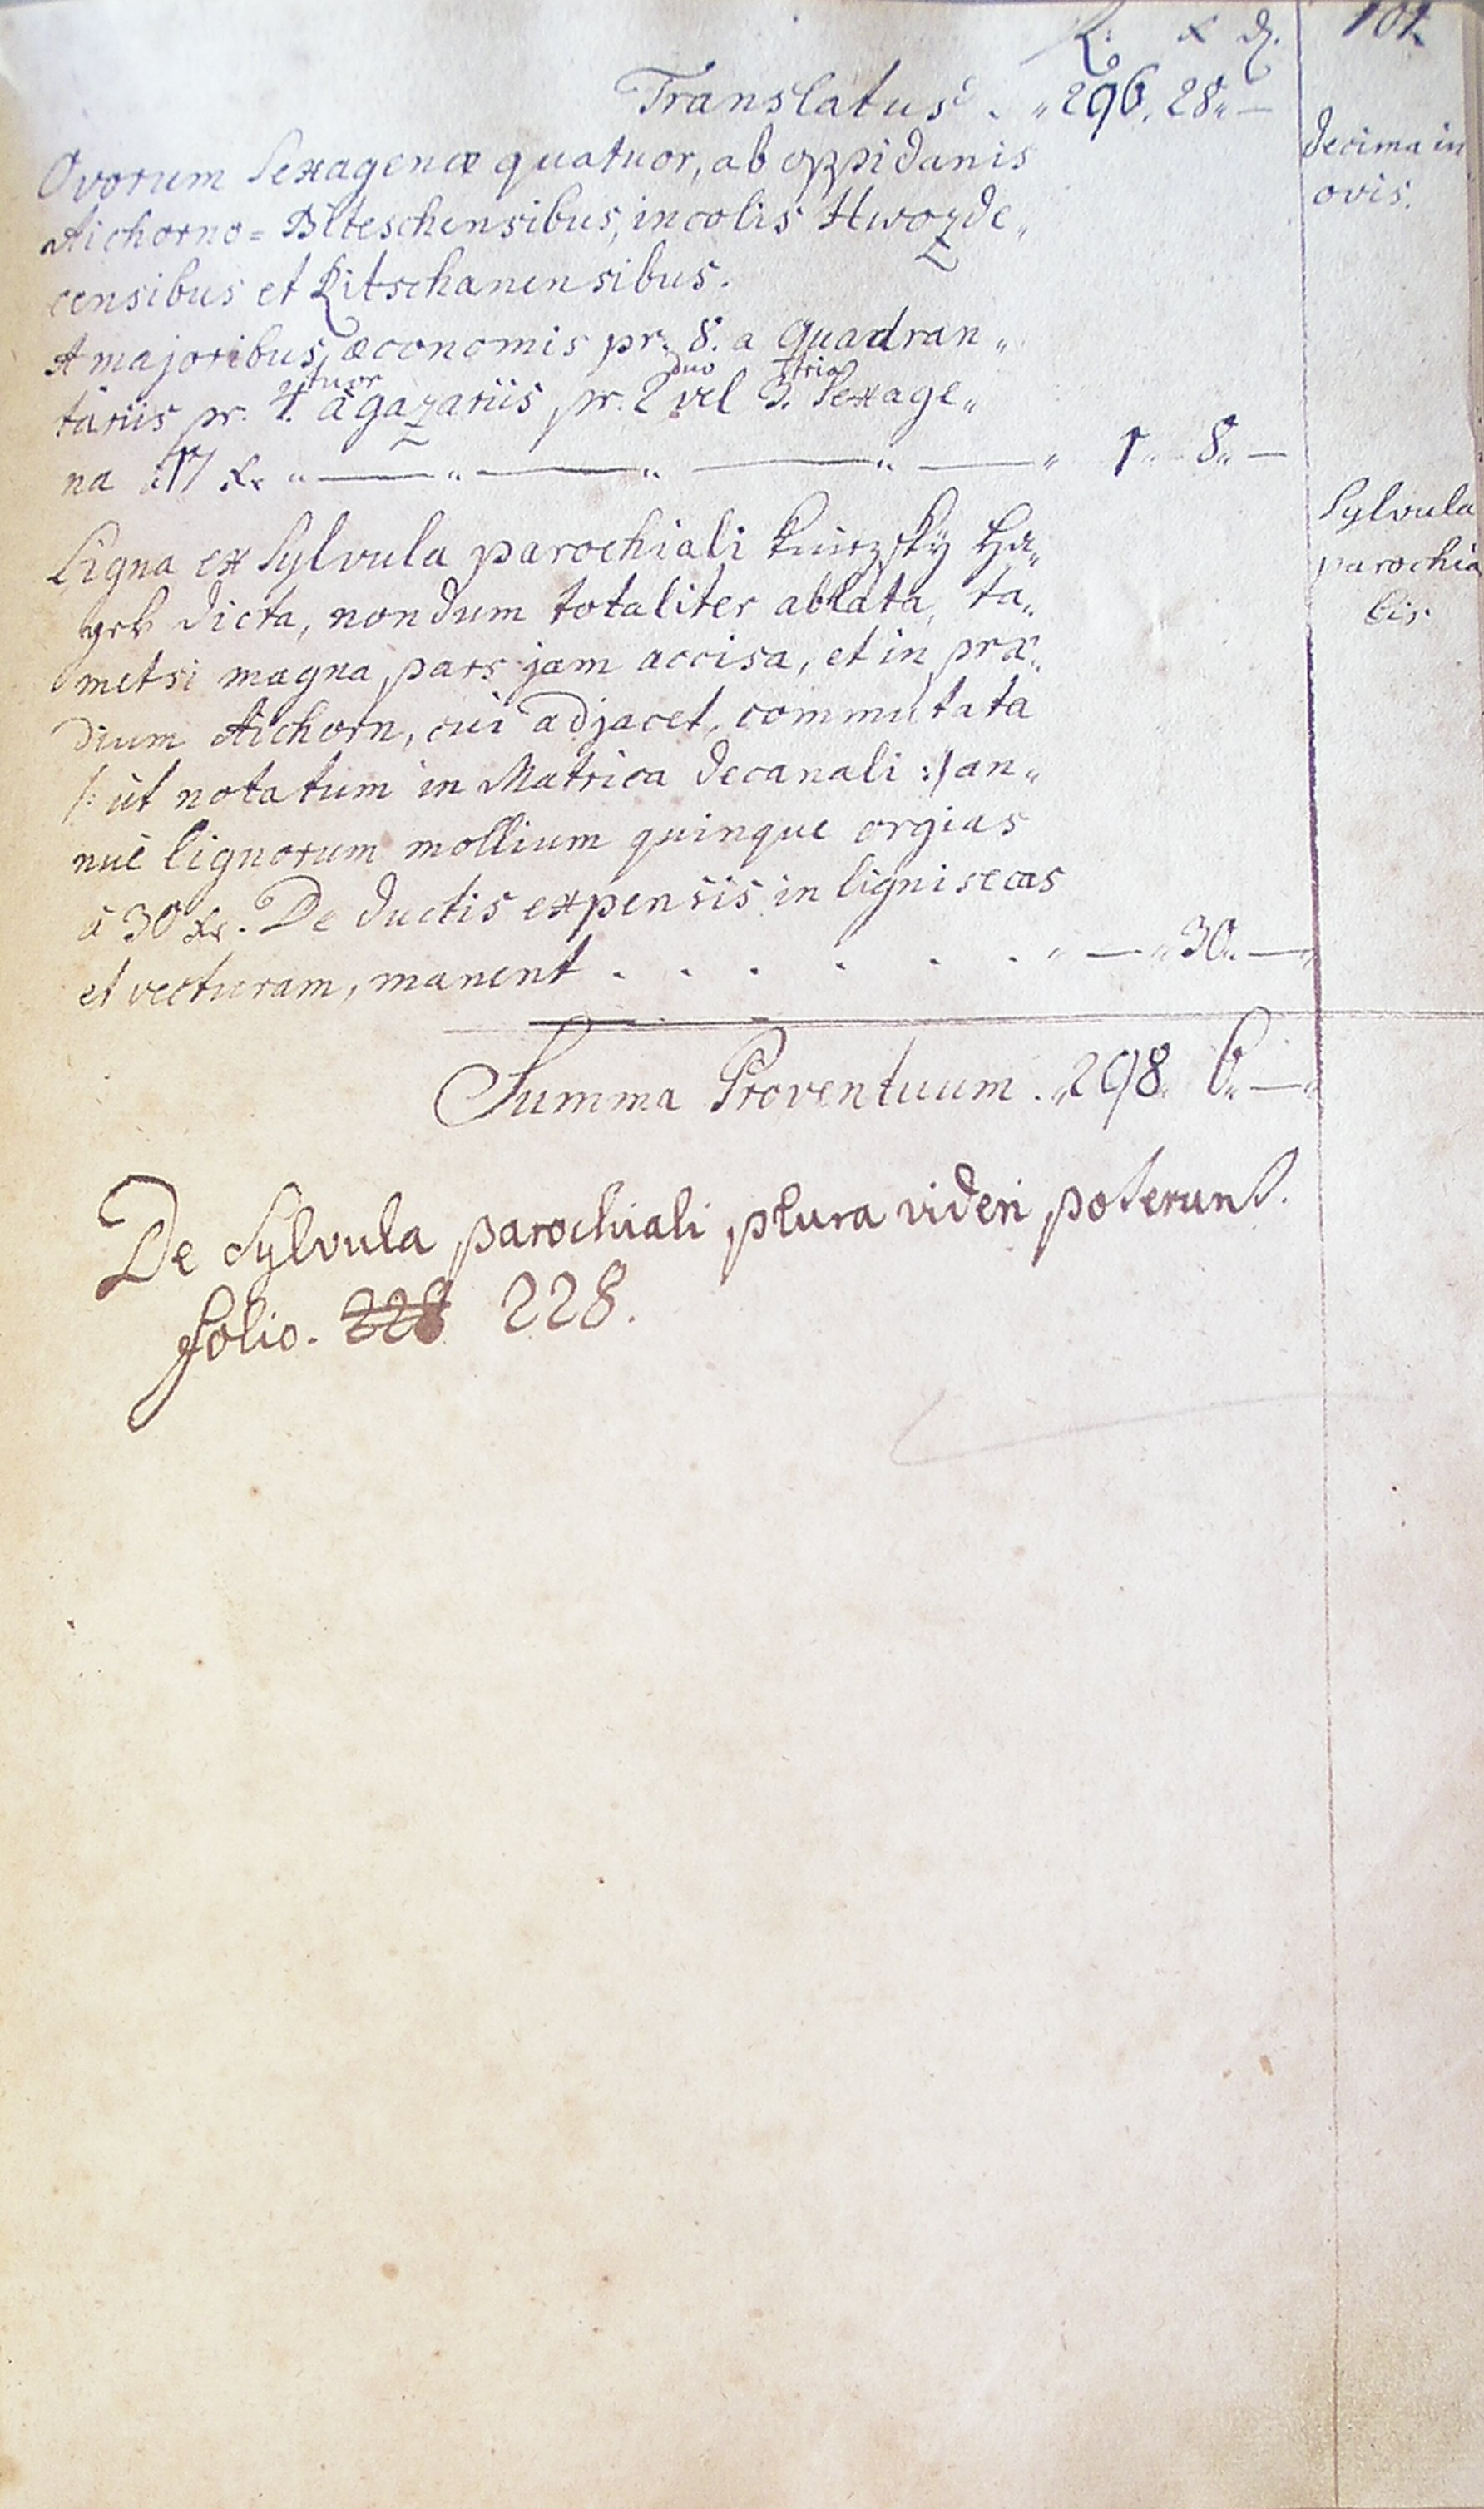 R: x d. 101
Translatus . „ 296. 28„ —
Ovorum Sexagenæ quatuor, ab oppidanis
decima in
ovis.
Aichorno = Biteschensibus, incolis Hwozde„
censibus et Ritschanensibus.
A majoribus œconomis pr. 8. a Quadran„
tariis pr. 4. tuor à gazariis pr. 2 duo vel 3. tria Sexage„
na à 17 Xr „ — „ — „ — „ — „ 1„ 8„ —
Sylvula
parochia
lis
Ligna ex Sylvula parochiali Knizsky Ha„
gek dicta, nondum totaliter ablata, ta„
metsi magna pars jam accisa, et in præ„
dium Aichorn, cui adjacet, commutata
/: ut notatum in Matrica decanali :/ an„
nuè lignorum mollium quinque orgias
à 30 Xr. De ductis expensis in lignisecas
et vecturam, manent . . . . . . „ — „ 30„ — „
Summa Proventuum . „ 298„ 6„ — „
De Sylvula parochiali plura videri poterunt.
folio. 228 228.